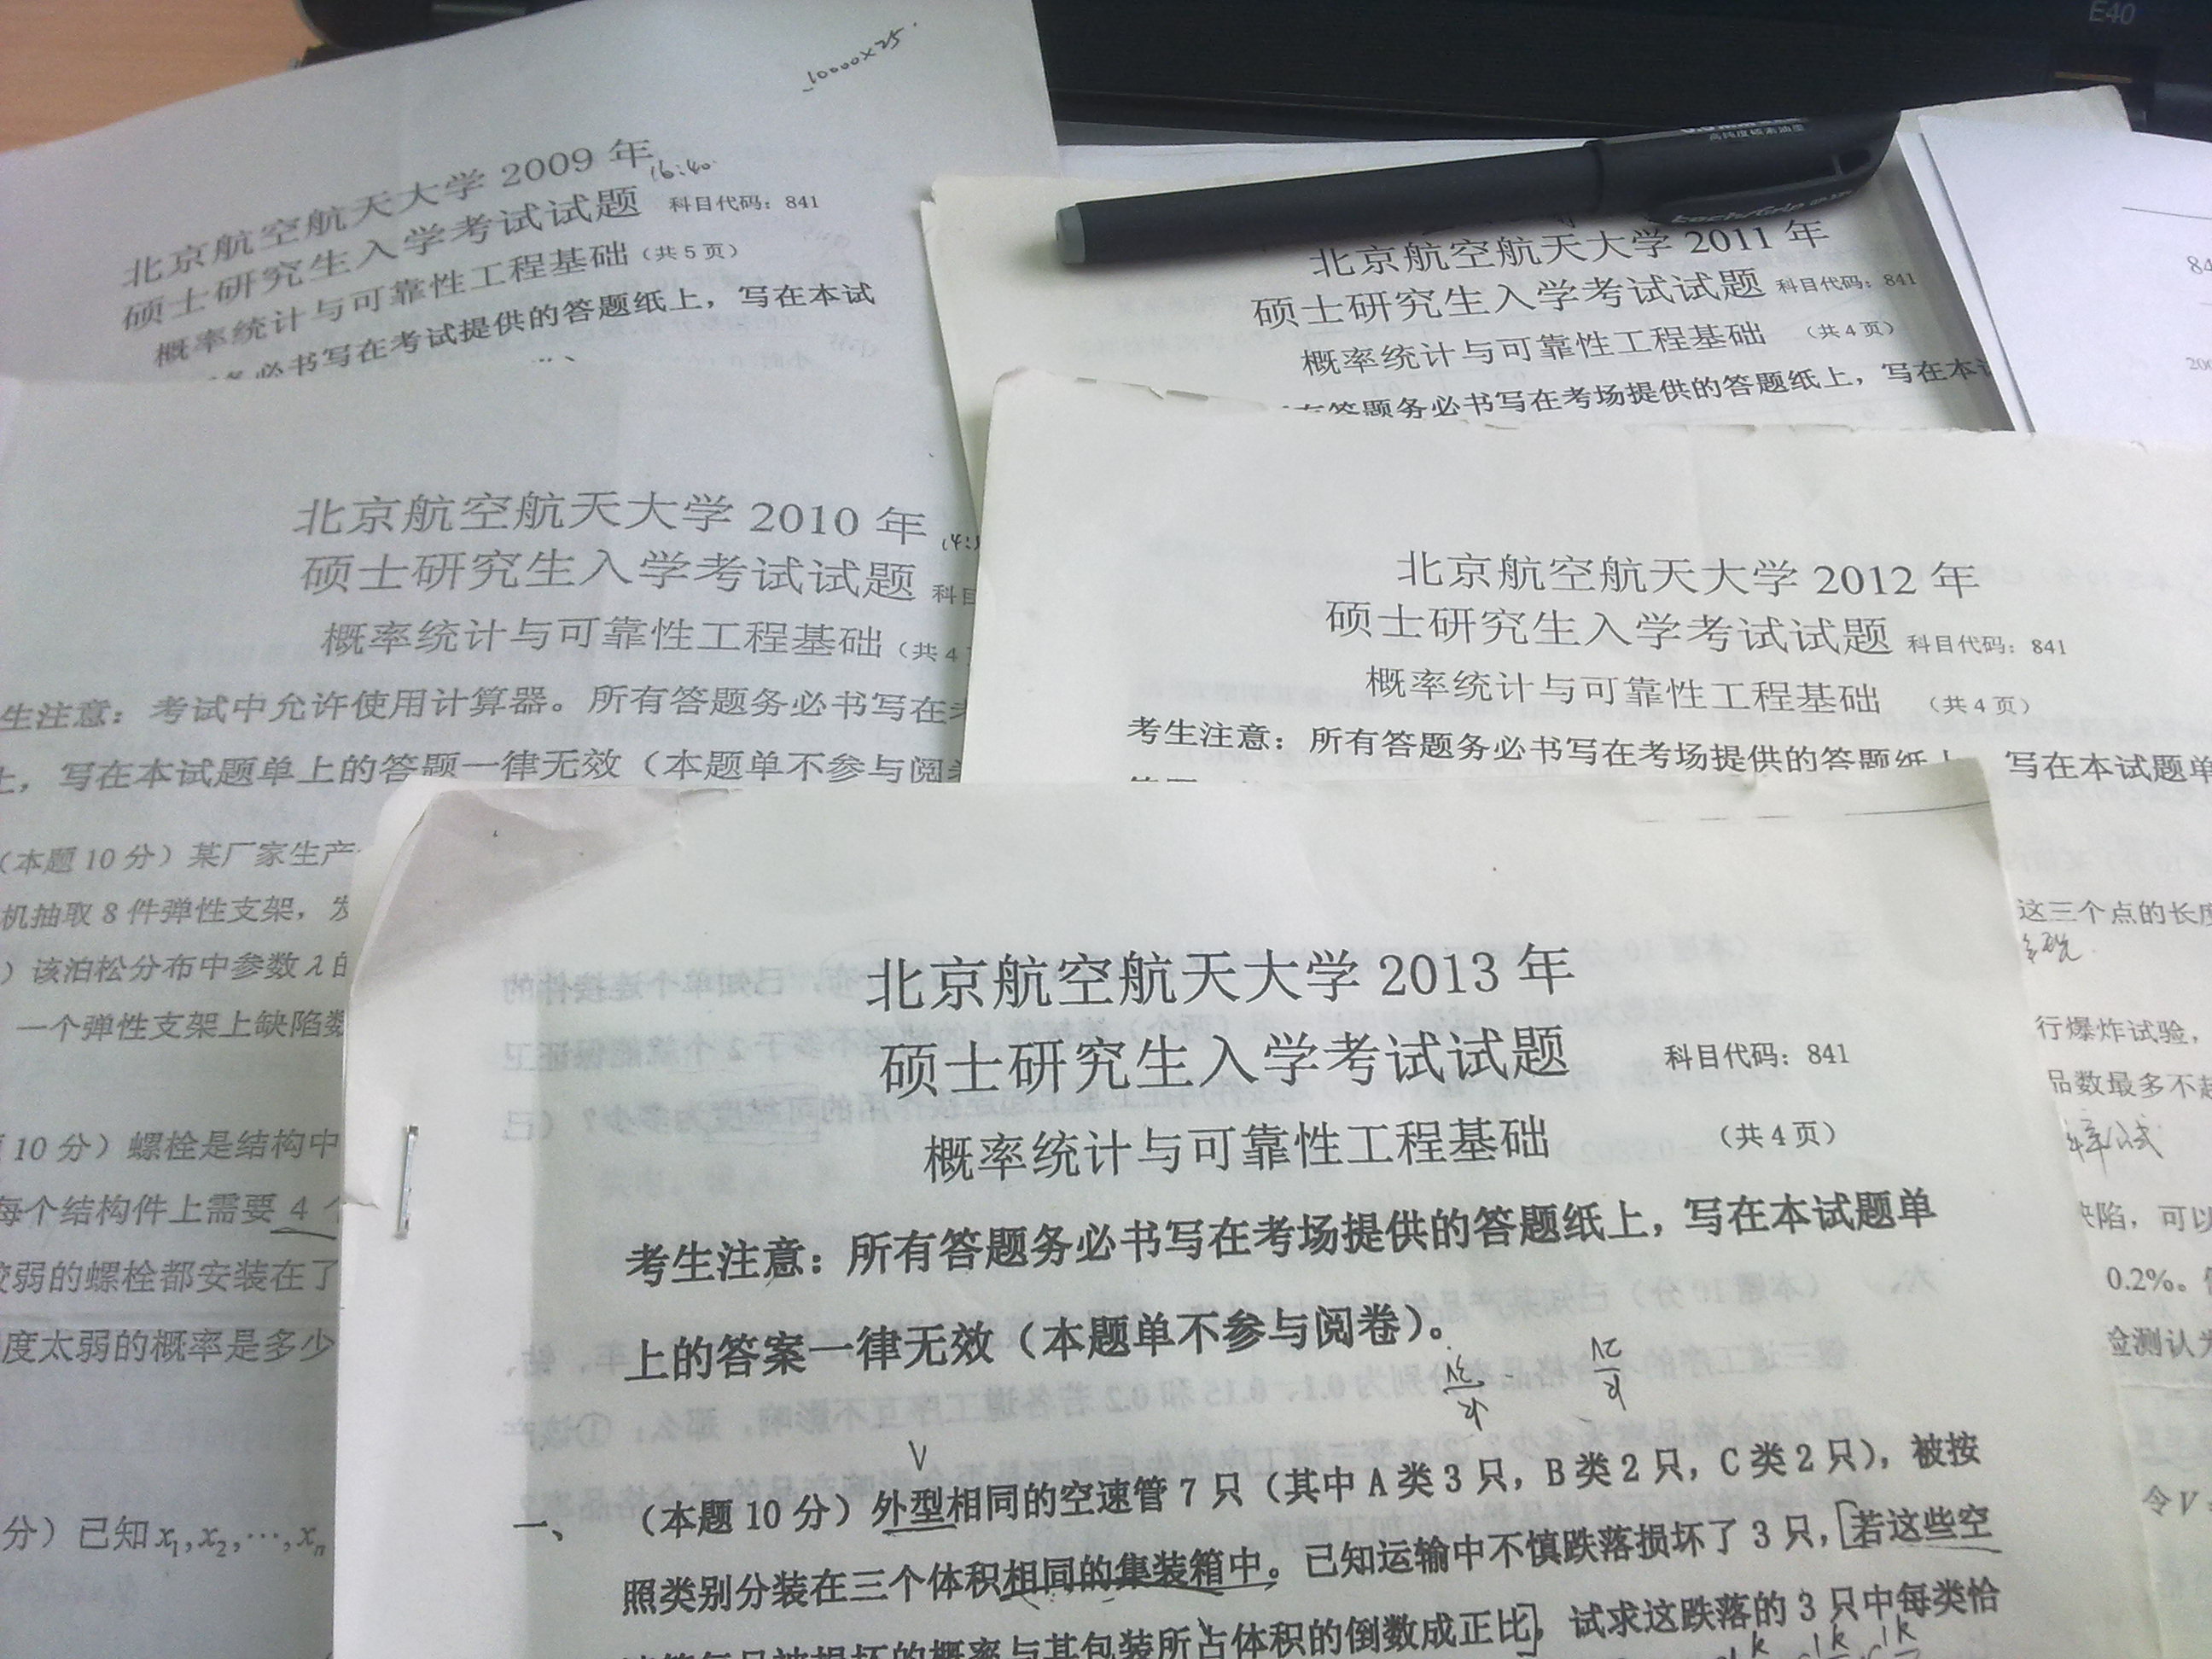 E40
10000×25.
北京航空航天大学 2009 年
16:40
硕士研究生入学考试试题 科目代码：841
概率统计与可靠性工程基础（共 5 页）
务必书写在考试提供的答题纸上，写在本试
北京航空航天大学 2011 年
硕士研究生入学考试试题 科目代码：841
概率统计与可靠性工程基础 （共 4 页）
有答题务必书写在考场提供的答题纸上，写在本试
84
200
北京航空航天大学 2010 年
硕士研究生入学考试试题 科目
概率统计与可靠性工程基础（共 4
生注意：考试中允许使用计算器。所有答题务必书写在考
上，写在本试题单上的答题一律无效（本题单不参与阅卷
（本题 10 分）某厂家生产
机抽取 8 件弹性支架，发
）该泊松分布中参数 λ 的
一个弹性支架上缺陷数
10 分）螺栓是结构中
每个结构件上需要 4 个
较弱的螺栓都安装在了
度太弱的概率是多少
分）已知 x₁,x₂,⋯,xₙ
北京航空航天大学 2012 年
硕士研究生入学考试试题 科目代码：841
概率统计与可靠性工程基础 （共 4 页）
考生注意：所有答题务必书写在考场提供的答题纸上，写在本试题单
这三个点的长度
行爆炸试验，
品数最多不超
缺陷，可以
0.2%。
检测认为
令 V
北京航空航天大学 2013 年
硕士研究生入学考试试题 科目代码：841
概率统计与可靠性工程基础 （共 4 页）
考生注意：所有答题务必书写在考场提供的答题纸上，写在本试题单
上的答案一律无效（本题单不参与阅卷）。
一、 （本题 10 分）外型相同的空速管 7 只（其中 A 类 3 只，B 类 2 只，C 类 2 只），被按
照类别分装在三个体积相同的集装箱中。已知运输中不慎跌落损坏了 3 只，若这些空
速管每只被损坏的概率与其包装所占体积的倒数成正比，试求这跌落的 3 只中每类恰